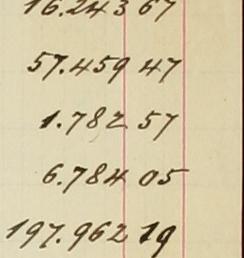 16.243 67
57.459 47
1.782 57
6.784 05
197.962 19